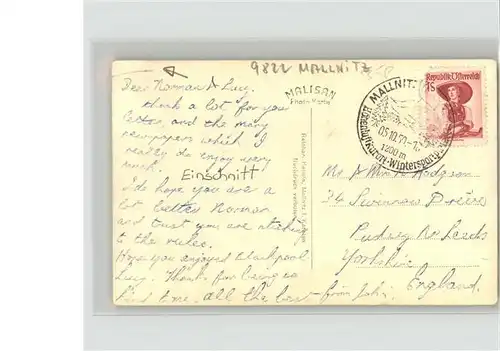 9822 MALLNITZ
MALISAN
Dear Norman & Lucy.
Thank a lot for you
letter and the many
newspapers which I
really do enjoy very
much.
Einschnitt
I do hope you are a
lot better Norman
and trust you are sticking
to the rules.
Hope you enjoyed Blackpool
Lucy. Thanks for being so
kind to me. all the best from John.
Republik Österreich
1S
MALLNITZ
05.10.59
1200 m
Höhenluftkurort-Wintersport
Mr & Mrs N Hodgson
34 Swinnow Drive
Pudsey Nr Leeds
Yorkshire
England.